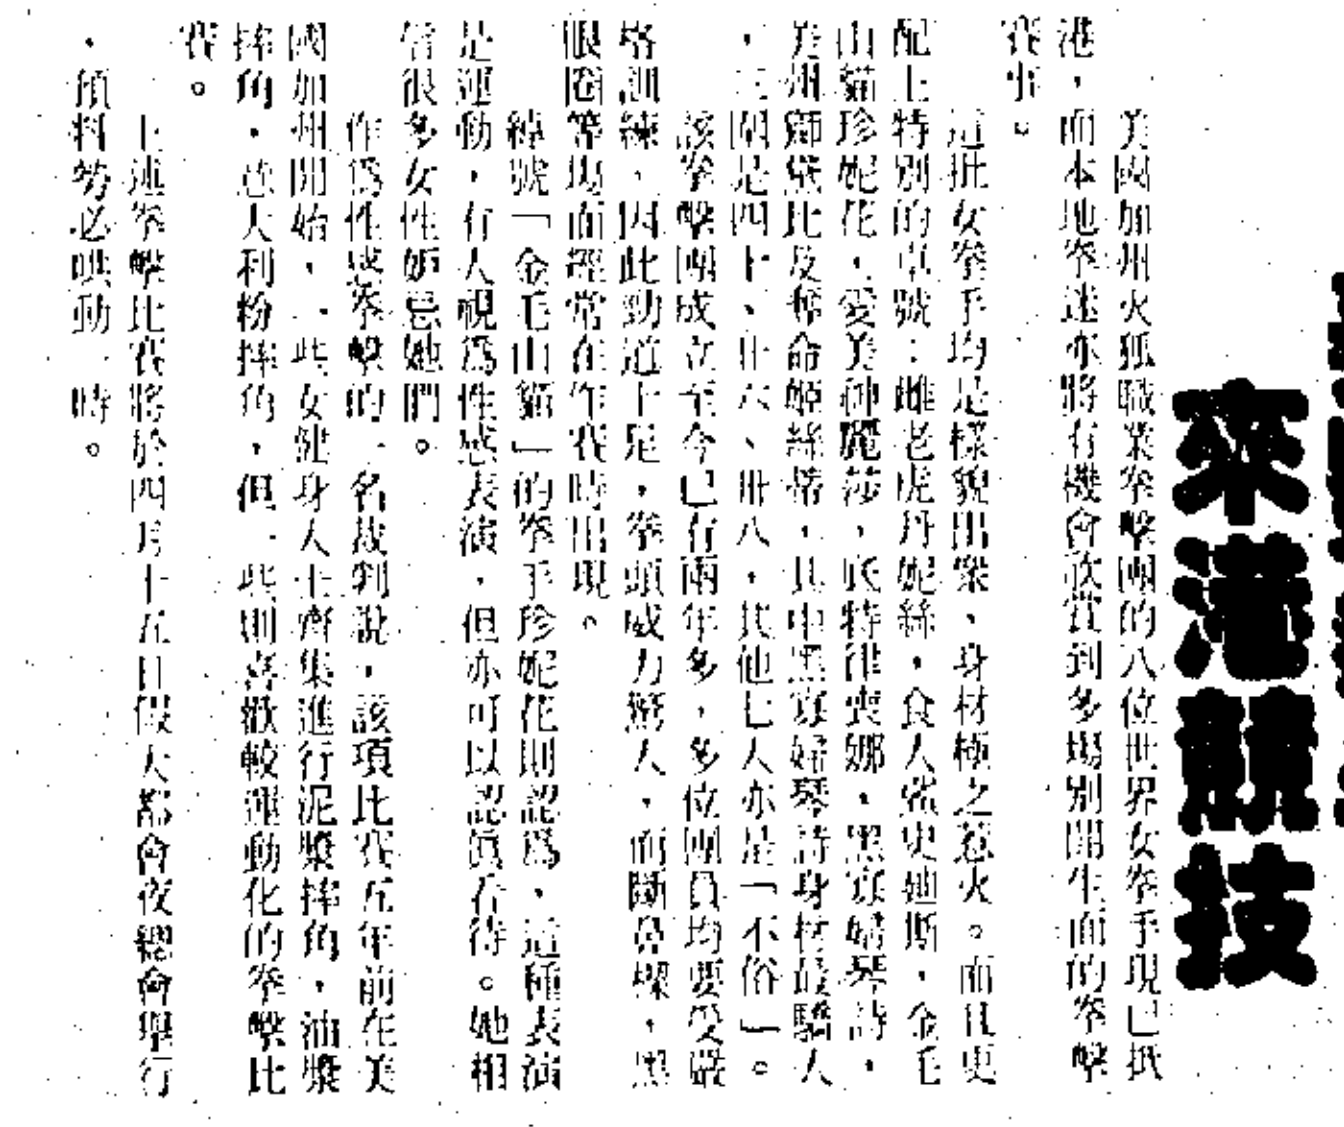 來港競技
美國加州火狐職業拳擊團的八位世界女拳手現已抵
港，而本地拳迷亦將有機會欣賞到多場別開生面的拳擊
賽事。
這批女拳手均是樣貌出衆、身材極之惹火。而且更
配上特別的卓號：雌老虎丹妮絲，食人鯊史廸斯，金毛
山貓珍妮花，愛美神麗莎，底特律喪娜，黑寡婦琴詩，
美州獅黛比及奪命姬絲蒂，其中黑寡婦琴詩身材最驕人
，三圍是四十、廿六、卅八，其他七人亦是「不俗」。
該拳擊團成立至今已有兩年多，多位團員均要受嚴
格訓練，因此勁道十足，拳頭威力驚人，而斷鼻樑，黑
眼圈等場面經常在作賽時出現。
綽號「金毛山貓」的拳手珍妮花則認爲，這種表演
是運動，有人視爲性感表演，但亦可以認眞看待。她相
信很多女性妬忌她們。
作爲性感拳擊的一名裁判說，該項比賽五年前在美
國加州開始，一些女健身人士齊集進行泥漿摔角，油漿
摔角，意大利粉摔角，但一些則喜歡較運動化的拳擊比
賽。
上述拳擊比賽將於四月十五日假大都會夜總會舉行
，預料勢必哄動一時。